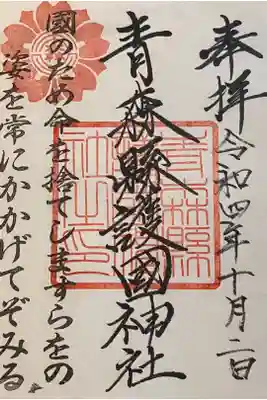 奉拝
令和四年十月二日
青森縣護國神社
國のため命を捨てしますらをの
姿を常にかかげてぞみる